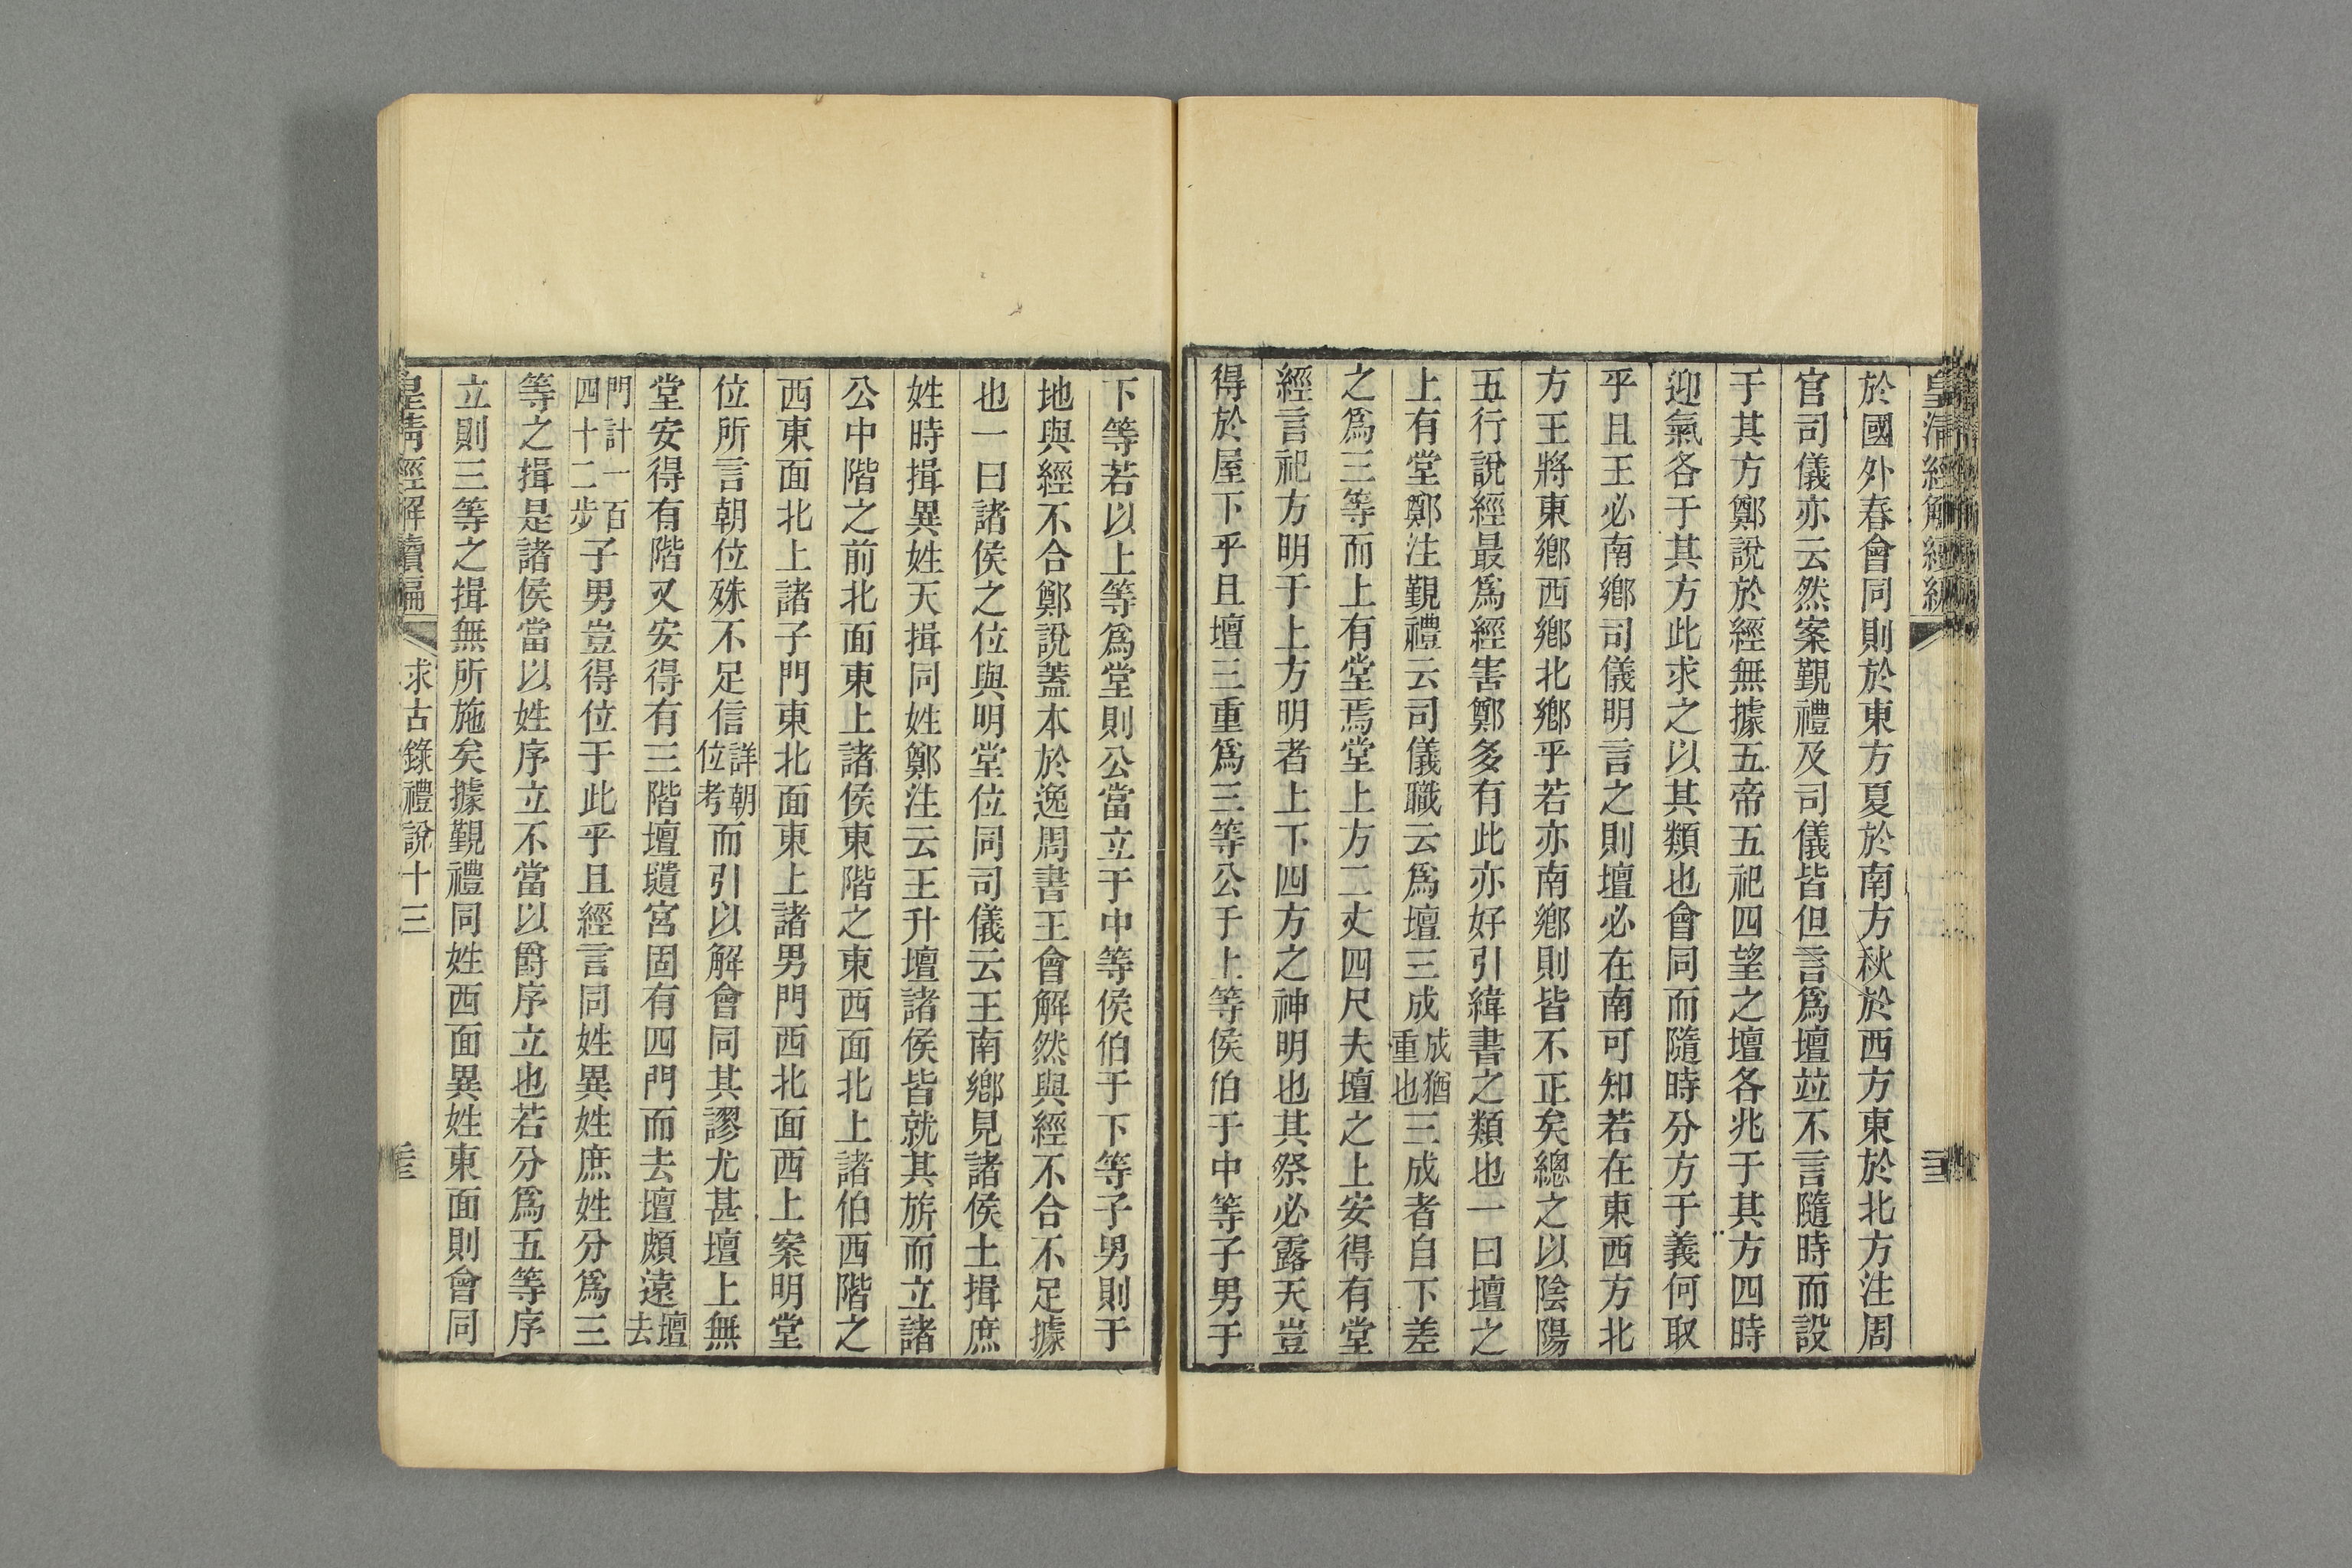 於國外春會同則於東方夏於南方秋於西方東於北方注周
官司儀亦云然案覲禮及司儀皆但言爲壇竝不言隨時而設
于其方鄭說於經無據五帝五祀四望之壇各兆于其方四時
迎氣各于其方此求之以其類也會同而隨時分方于義何取
乎且王必南鄉司儀明言之則壇必在南可知若在東西方北
方王將東鄉西鄉北鄉乎若亦南鄉則皆不正矣總之以陰陽
五行說經最爲經害鄭多有此亦好引緯書之類也一曰壇之
上有堂鄭注覲禮云司儀職云爲壇三成成猶重也三成者自下差
之爲三等而上有堂焉堂上方二丈四尺夫壇之上安得有堂
經言祀方明于上方明者上下四方之神明也其祭必露天豈
得於屋下乎且壇三重爲三等公于上等侯伯于中等子男于
下等若以上等爲堂則公當立于中等侯伯于下等子男則于
地與經不合鄭說蓋本於逸周書王會解然與經不合不足據
也一曰諸侯之位與明堂位同司儀云王南鄉見諸侯土揖庶
姓時揖異姓天揖同姓鄭注云王升壇諸侯皆就其旂而立諸
公中階之前北面東上諸侯東階之東西面北上諸伯西階之
西東面北上諸子門東北面東上諸男門西北面西上案明堂
位所言朝位殊不足信詳朝位考而引以解會同其謬尤甚壇上無
堂安得有階又安得有三階壇壝宮固有四門而去壇頗遠壇去
門計一百四十二步子男豈得位于此乎且經言同姓異姓庶姓分爲三
等之揖是諸侯當以姓序立不當以爵序立也若分爲五等序
立則三等之揖無所施矣據覲禮同姓西面異姓東面則會同
皇清經解續編 求古錄禮說十三